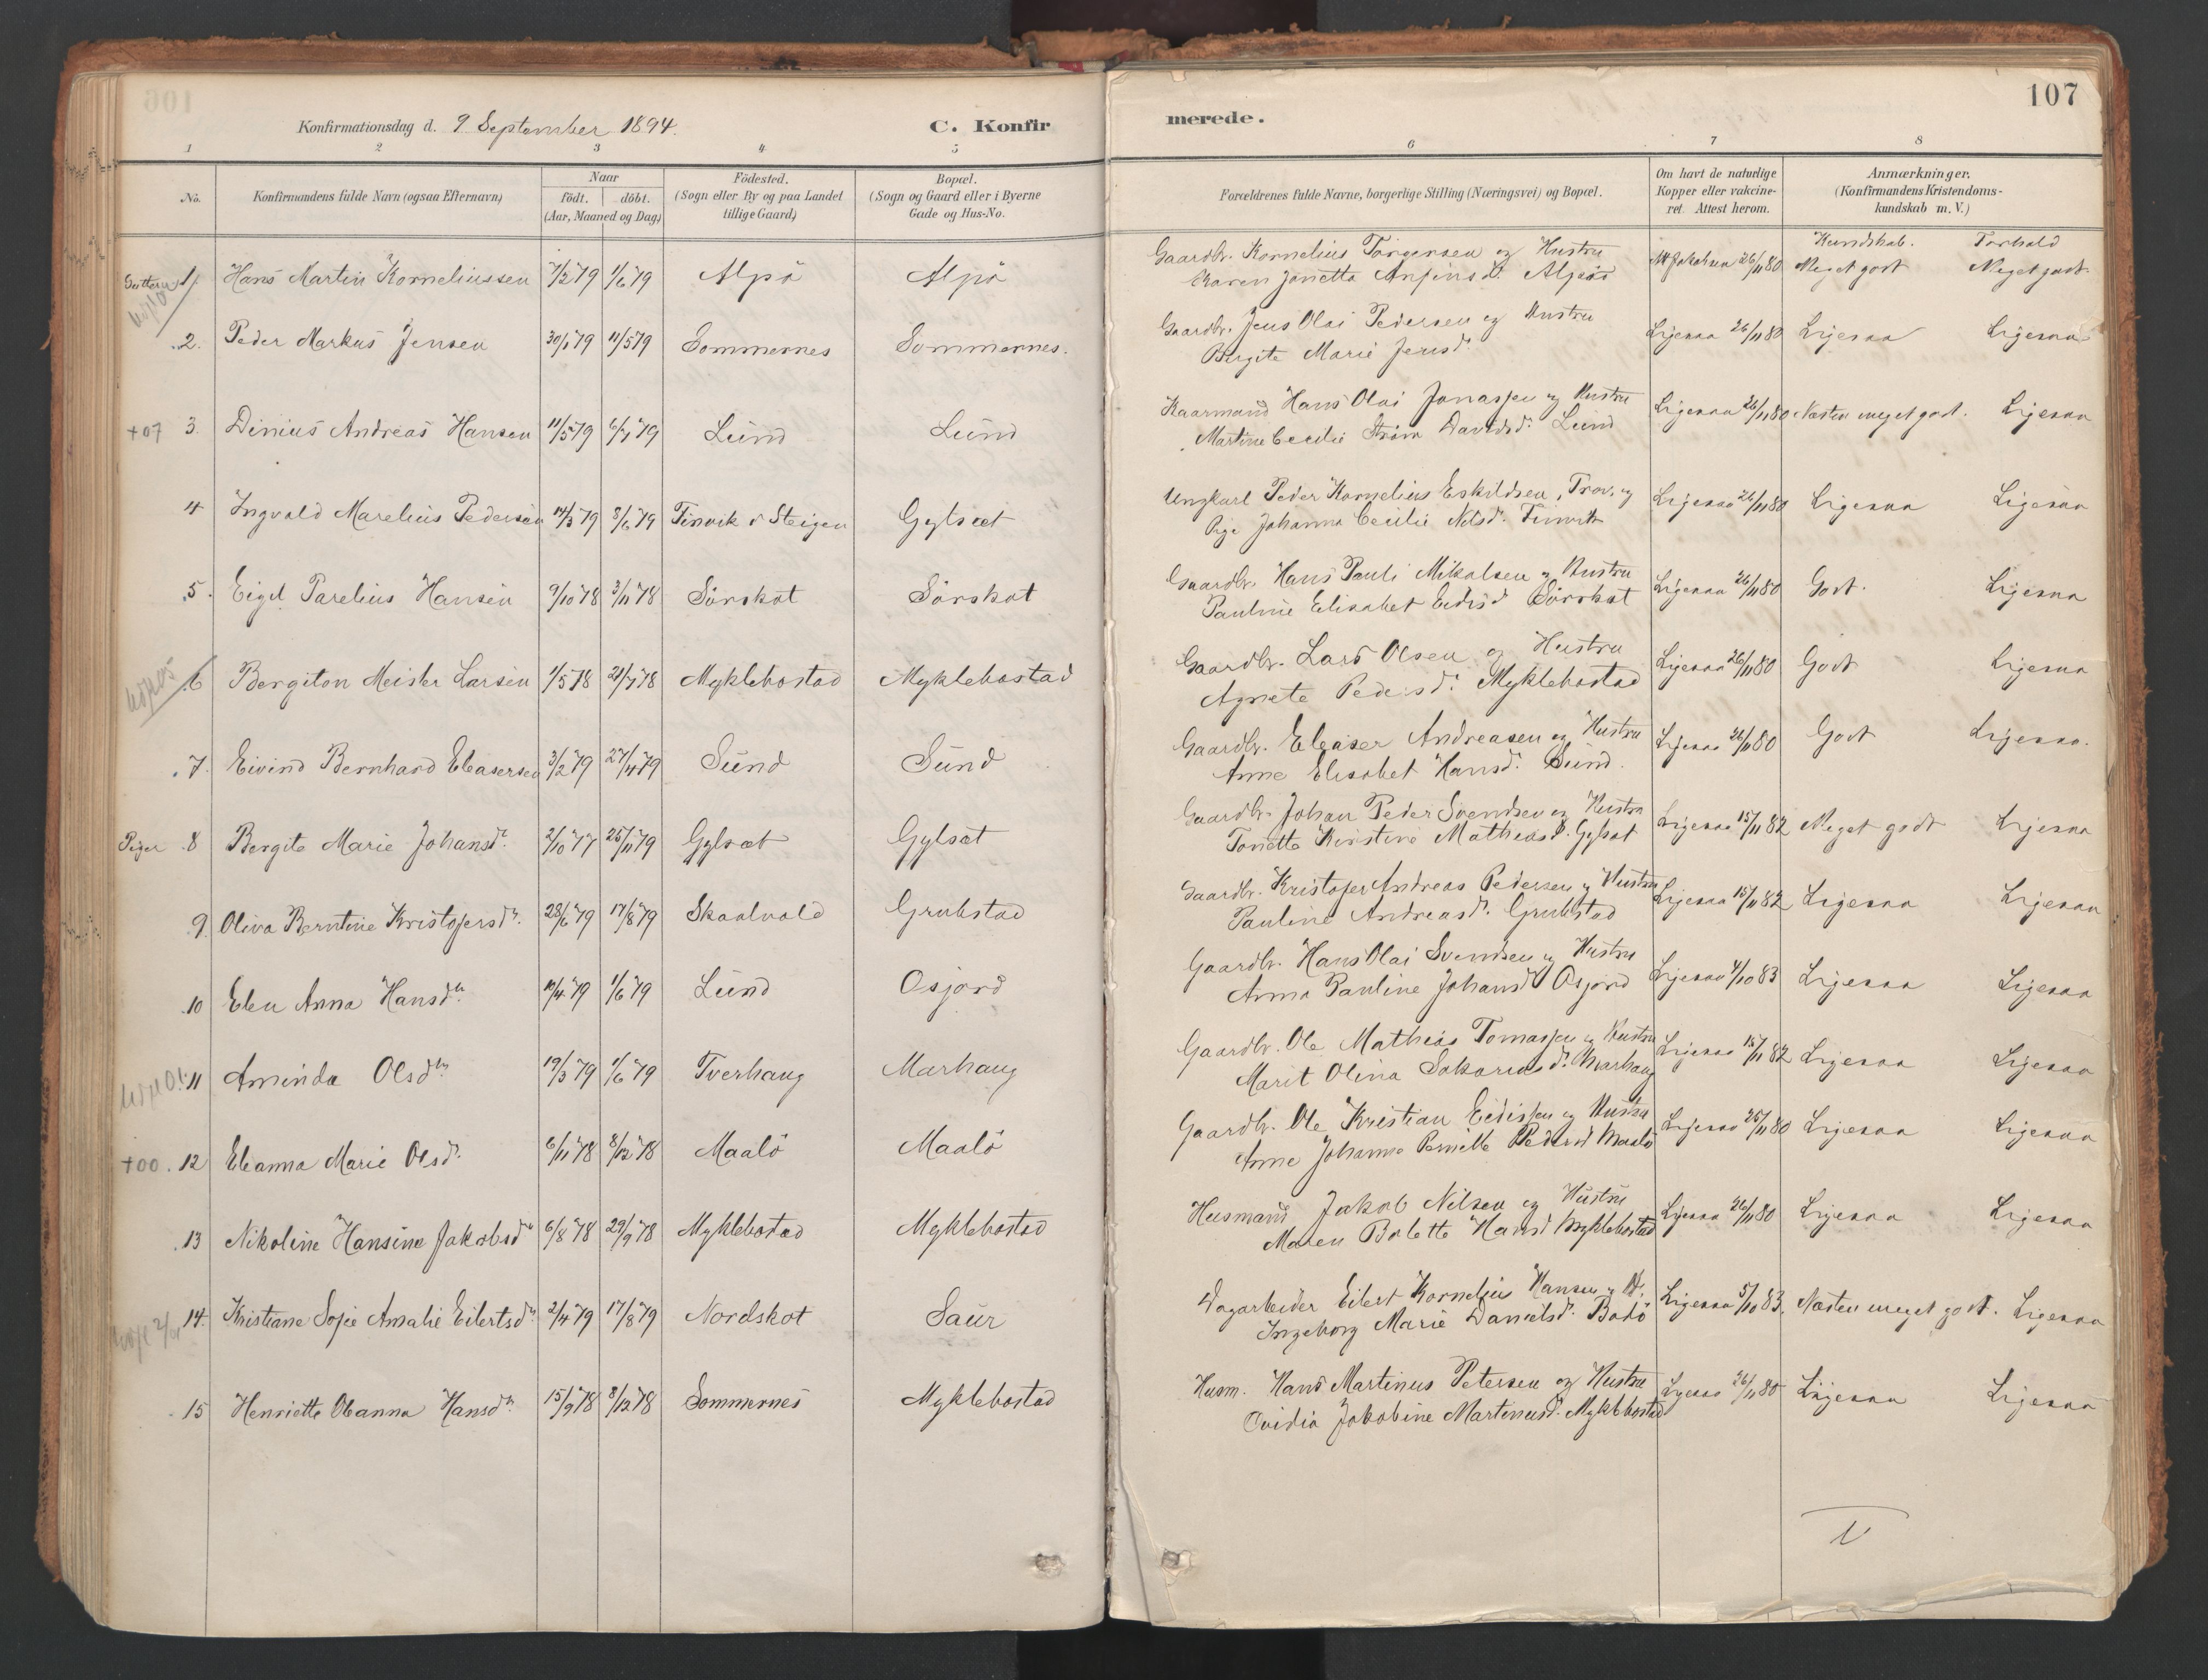 107
Konfirmationsdag d. 9 September 1894.
C. Konfirmerede.
1 2 3 4 5 6 7 8
No.
Konfirmandens fulde Navn (ogsaa Efternavn)
Naar
födt. döbt.
(Aar, Maaned og Dag)
Födested.
(Sogn eller By og paa Landet
tillige Gaard)
Bopæl.
(Sogn og Gaard eller i Byerne
Gade og Hus-No.
Forældrenes fulde Navne, borgerlige Stilling (Næringsvei) og Bopæl.
Om havt de naturlige
Kopper eller vakcine-
ret. Attest herom.
Anmærkninger.
(Konfirmandens Kristendoms-
kundskab m. V.)
Kundskab. Forhold
Gutter 1. Hans Martin Korneliussen 7/2 79 1/6 79 Alpö Alpö Gaardbr. Kornelius Torgersen og Hustru
Karen Janetta Anfinsd. Alpö 26/11 80 Meget godt Meget godt.
2. Peder Markus Jensen 30/1 79 11/5 79 Sommernes Sommernes. Gaardbr. Jens Olai Pedersen og Hustru
Birgite Marie Jensd. Ligesaa 26/11 80 Ligesaa Ligesaa
+07 3. Dinius Andreas Hansen 11/5 79 6/7 79 Lund Lund Kaarmand Hans Olai Jonassen og Hustru
Martine Cecilie Strøm Davidsd. Lund Ligesaa 26/11 80 Næsten meget godt. Ligesaa
4 Ingvald Marelius Pedersen 14/3 79 8/6 79 Finvik i Steigen Gylsæt Ungkarl Peder Kornelius Eskildsen, Trov. og
Pige Johanna Cecilie Nilsd. Finvik Ligesaa 26/11 80 Ligesaa Ligesaa
5. Eigil Parelius Hansen 9/10 78 3/11 78 Sörskot Sörskot Gaardbr. Hans Pauli Mikalsen og Hustru
Pauline Elisabet Eidisd Sörskot Ligesaa 26/11 80 Godt. Ligesaa
6 Bergiton Meisler Larsen 1/5 78 21/7 78 Myklebostad Myklebostad Gaardbr. Lars Olsen og Hustru
Agnete Pedersd. Myklebostad Ligesaa 26/11 80 Godt Ligesaa
7. Eivind Bernhard Eleasersen 3/2 79 27/4 79 Sund Sund Gaardbr. Eleaser Andreasen og Hustru
Anne Elisabet Hansd. Sund. Ligesaa 26/11 80 Godt Ligesaa.
Piger 8 Bergite Marie Johansd. 2/10 77 25/11 79 Gylsæt Gylsæt Gaardbr. Johan Peder Svendsen og Hustru
Tonette Kirstine Mathiasd. Gylsæt Ligesaa 15/11 82 Meget godt Ligesaa
9. Oliva Berntine Kristofersdr. 28/6 79 17/8 79 Skaalvold Grubstad Gaardbr. Kristofer Andreas Pedersen og Hustru
Pauline Andreasd. Grubstad Ligesaa 15/11 82 Ligesaa Ligesaa
10 Elen Anna Hansdtr. 10/4 79 1/6 79 Lund Osjord Gaardbr. Hans Olai Svendsen og Hustru
Anna Pauline Johansd Osjord Ligesaa 4/10 83 Ligesaa Ligesaa
11 Aminda Olsdtr 19/3 79 1/6 79 Tverhaug Marhaug Gaardbr. Ole Mathias Tomassen og Hustru
Marit Olina Sakariasd. Marhaug Ligesaa 15/11 82 Ligesaa Ligesaa
+00. 12 Eleanna Marie Olsd. 6/11 78 8/12 78 Maalö Maalö Gaardbr. Ole Kristian Eidissen og Hustru
Anne Johanna Pernille Pedersd Maalö Ligesaa 25/11 80 Ligesaa Ligesaa
13 Nikoline Hansine Jakobsdtr 6/8 78 29/9 78 Myklebostad Myklebostad Husmand Jakob Nilsen og Hustru
Maren Bolette Hansd Myklebostad Ligesaa 26/11 80 Ligesaa Ligesaa
14. Kristiane Sofie Amalie Eilertsdtr 2/4 79 17/8 79 Nordskot Saur Dagarbeider Eilert Kornelius Hansen og H.
Ingeborg Marie Danielsd. Bodö Ligesaa 5/10 83. Næsten meget godt. Ligesaa
15 Henriette Oleanna Hansdtr. 15/9 78 8/12 78 Sommernes Myklebostad Husm. Hans Martinus Petersen og Hustru
Ovidia Jakobine Martinusd. Myklebostad Ligesaa 26/11 80 Ligesaa Ligesaa